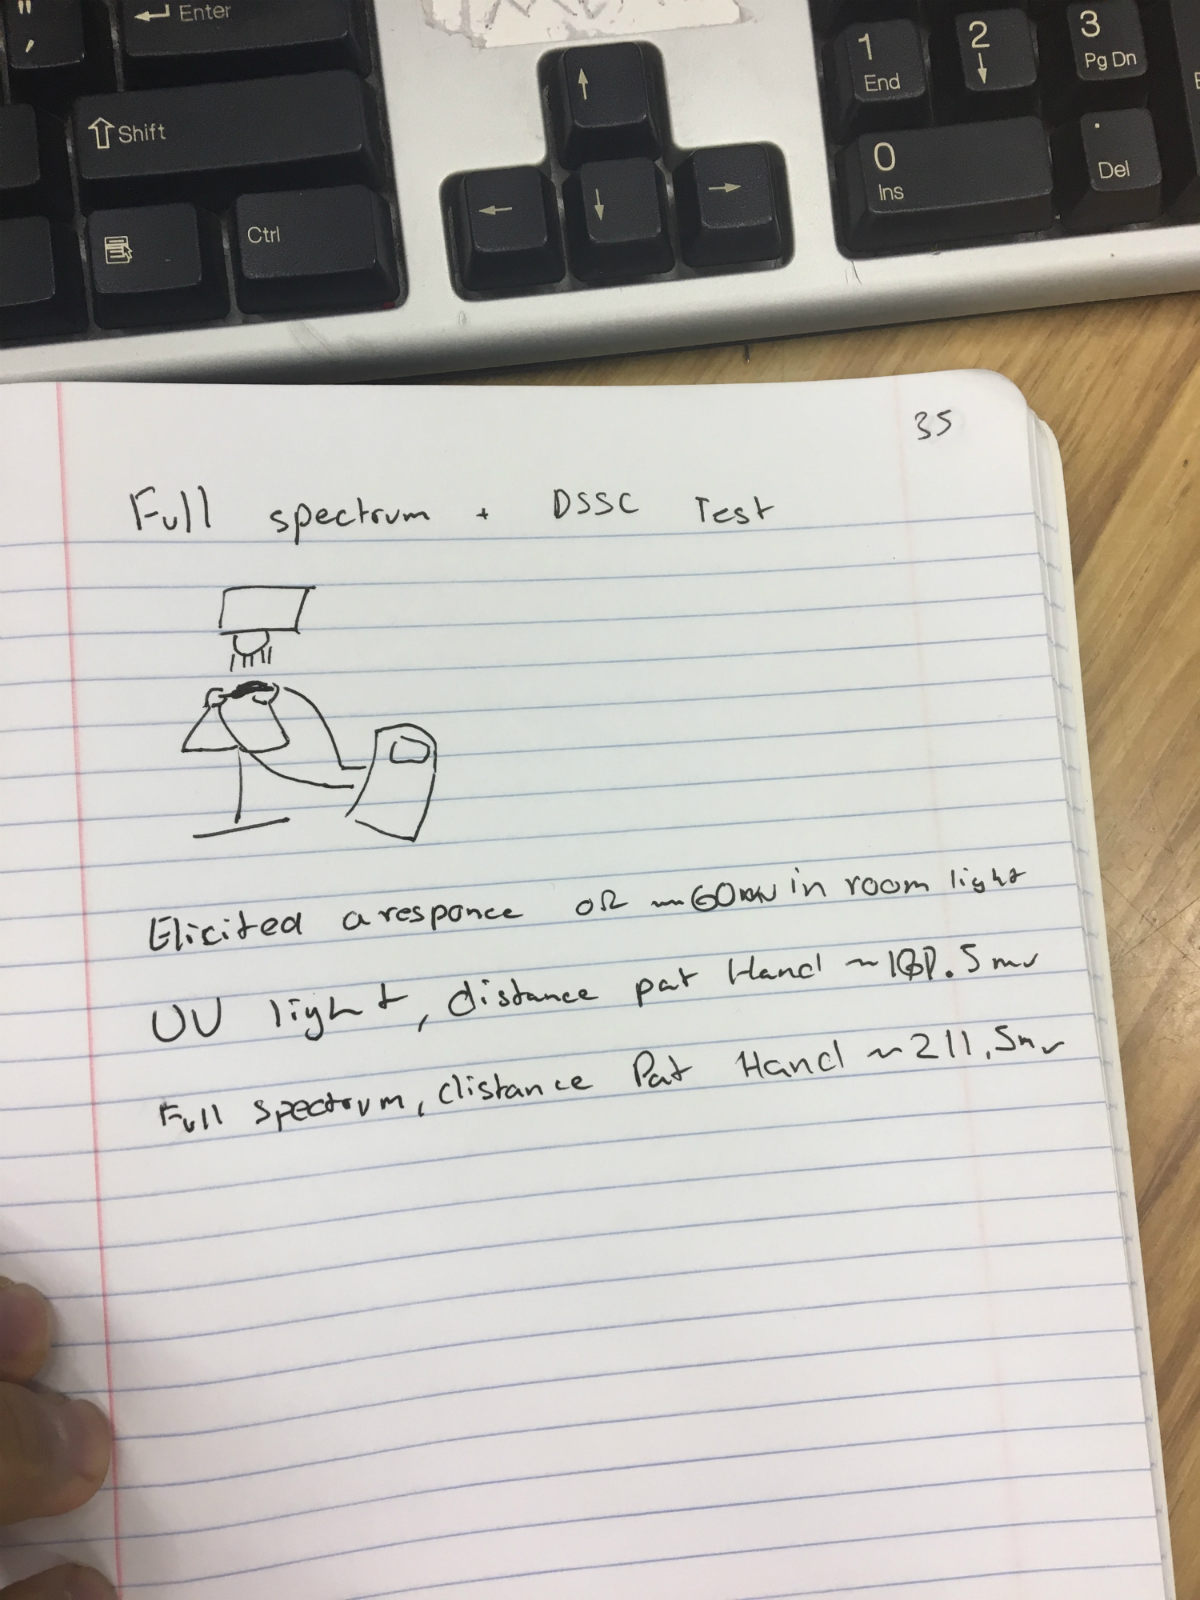 "
,
↵ Enter
⇧ Shift
Ctrl
↑
←
↓
→
1
End
2
↓
3
Pg Dn
0
Ins
.
Del
35
Full spectrum + DSSC Test
Elicited a responce of ~60mv in room light
UV light, distance pat Hand ~ .5mv
Full spectrum, distance Pat Hand ~211.5mv